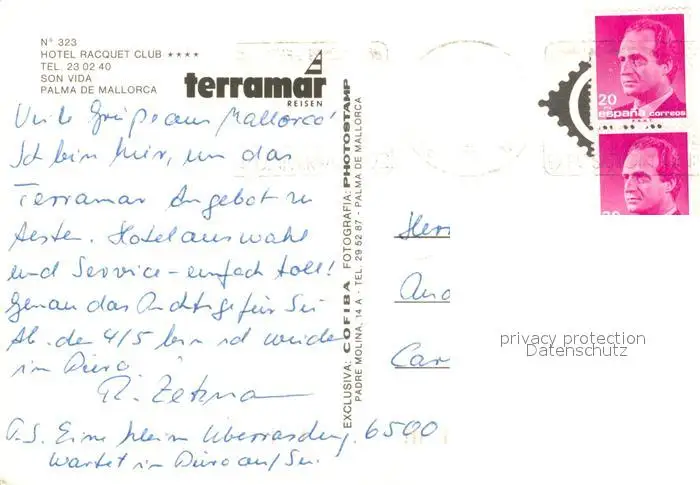 N° 323
HOTEL RACQUET CLUB ****
TEL. 23 02 40
SON VIDA
PALMA DE MALLORCA
terramar
REISEN
Viele Grüße aus Mallorca!
Ich bin hier, um das
Terramar Angebot zu
testen. Hotelauswahl
und Service - einfach toll!
Genau das Richtige für Sie
Ab dem 4/5 bin ich wieder
im Büro
P.S. Eine kleine Überraschung
wartet im Büro auf Sie.
EXCLUSIVA: COFIBA FOTOGRAFIA: PHOTOSTAMP
PADRE MOLINA, 14 A - TEL. 29 52 87 - PALMA DE MALLORCA
20
españa correos
Herr
And
Car
6500
privacy protection
Datenschutz